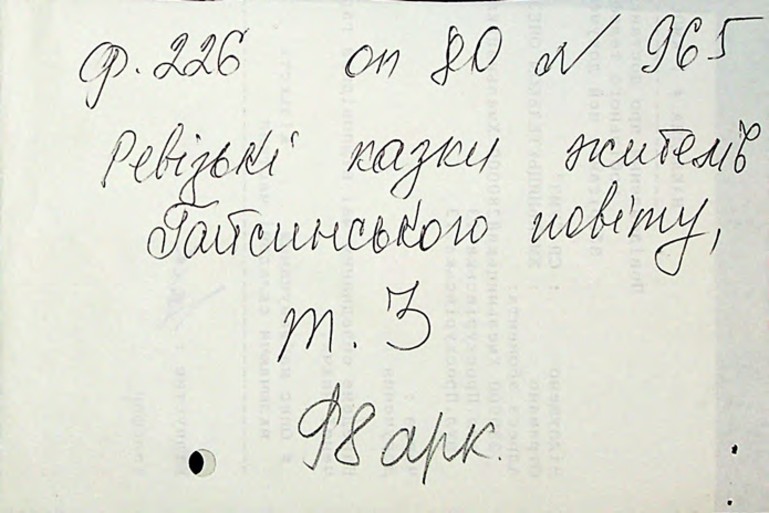 ф. 226 оп 80 N 965
Ревізькі казки жителів
Гайсинського повіту,
т. 3
98 арк.